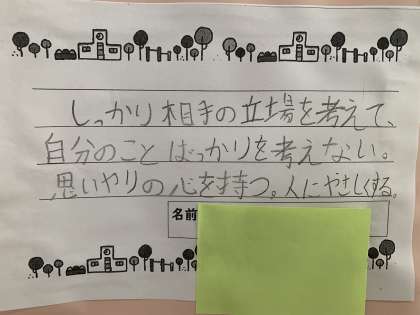 しっかり相手の立場を考えて、
自分のことばっかりを考えない。
思いやりの心を持つ。人にやさしくする。
名前